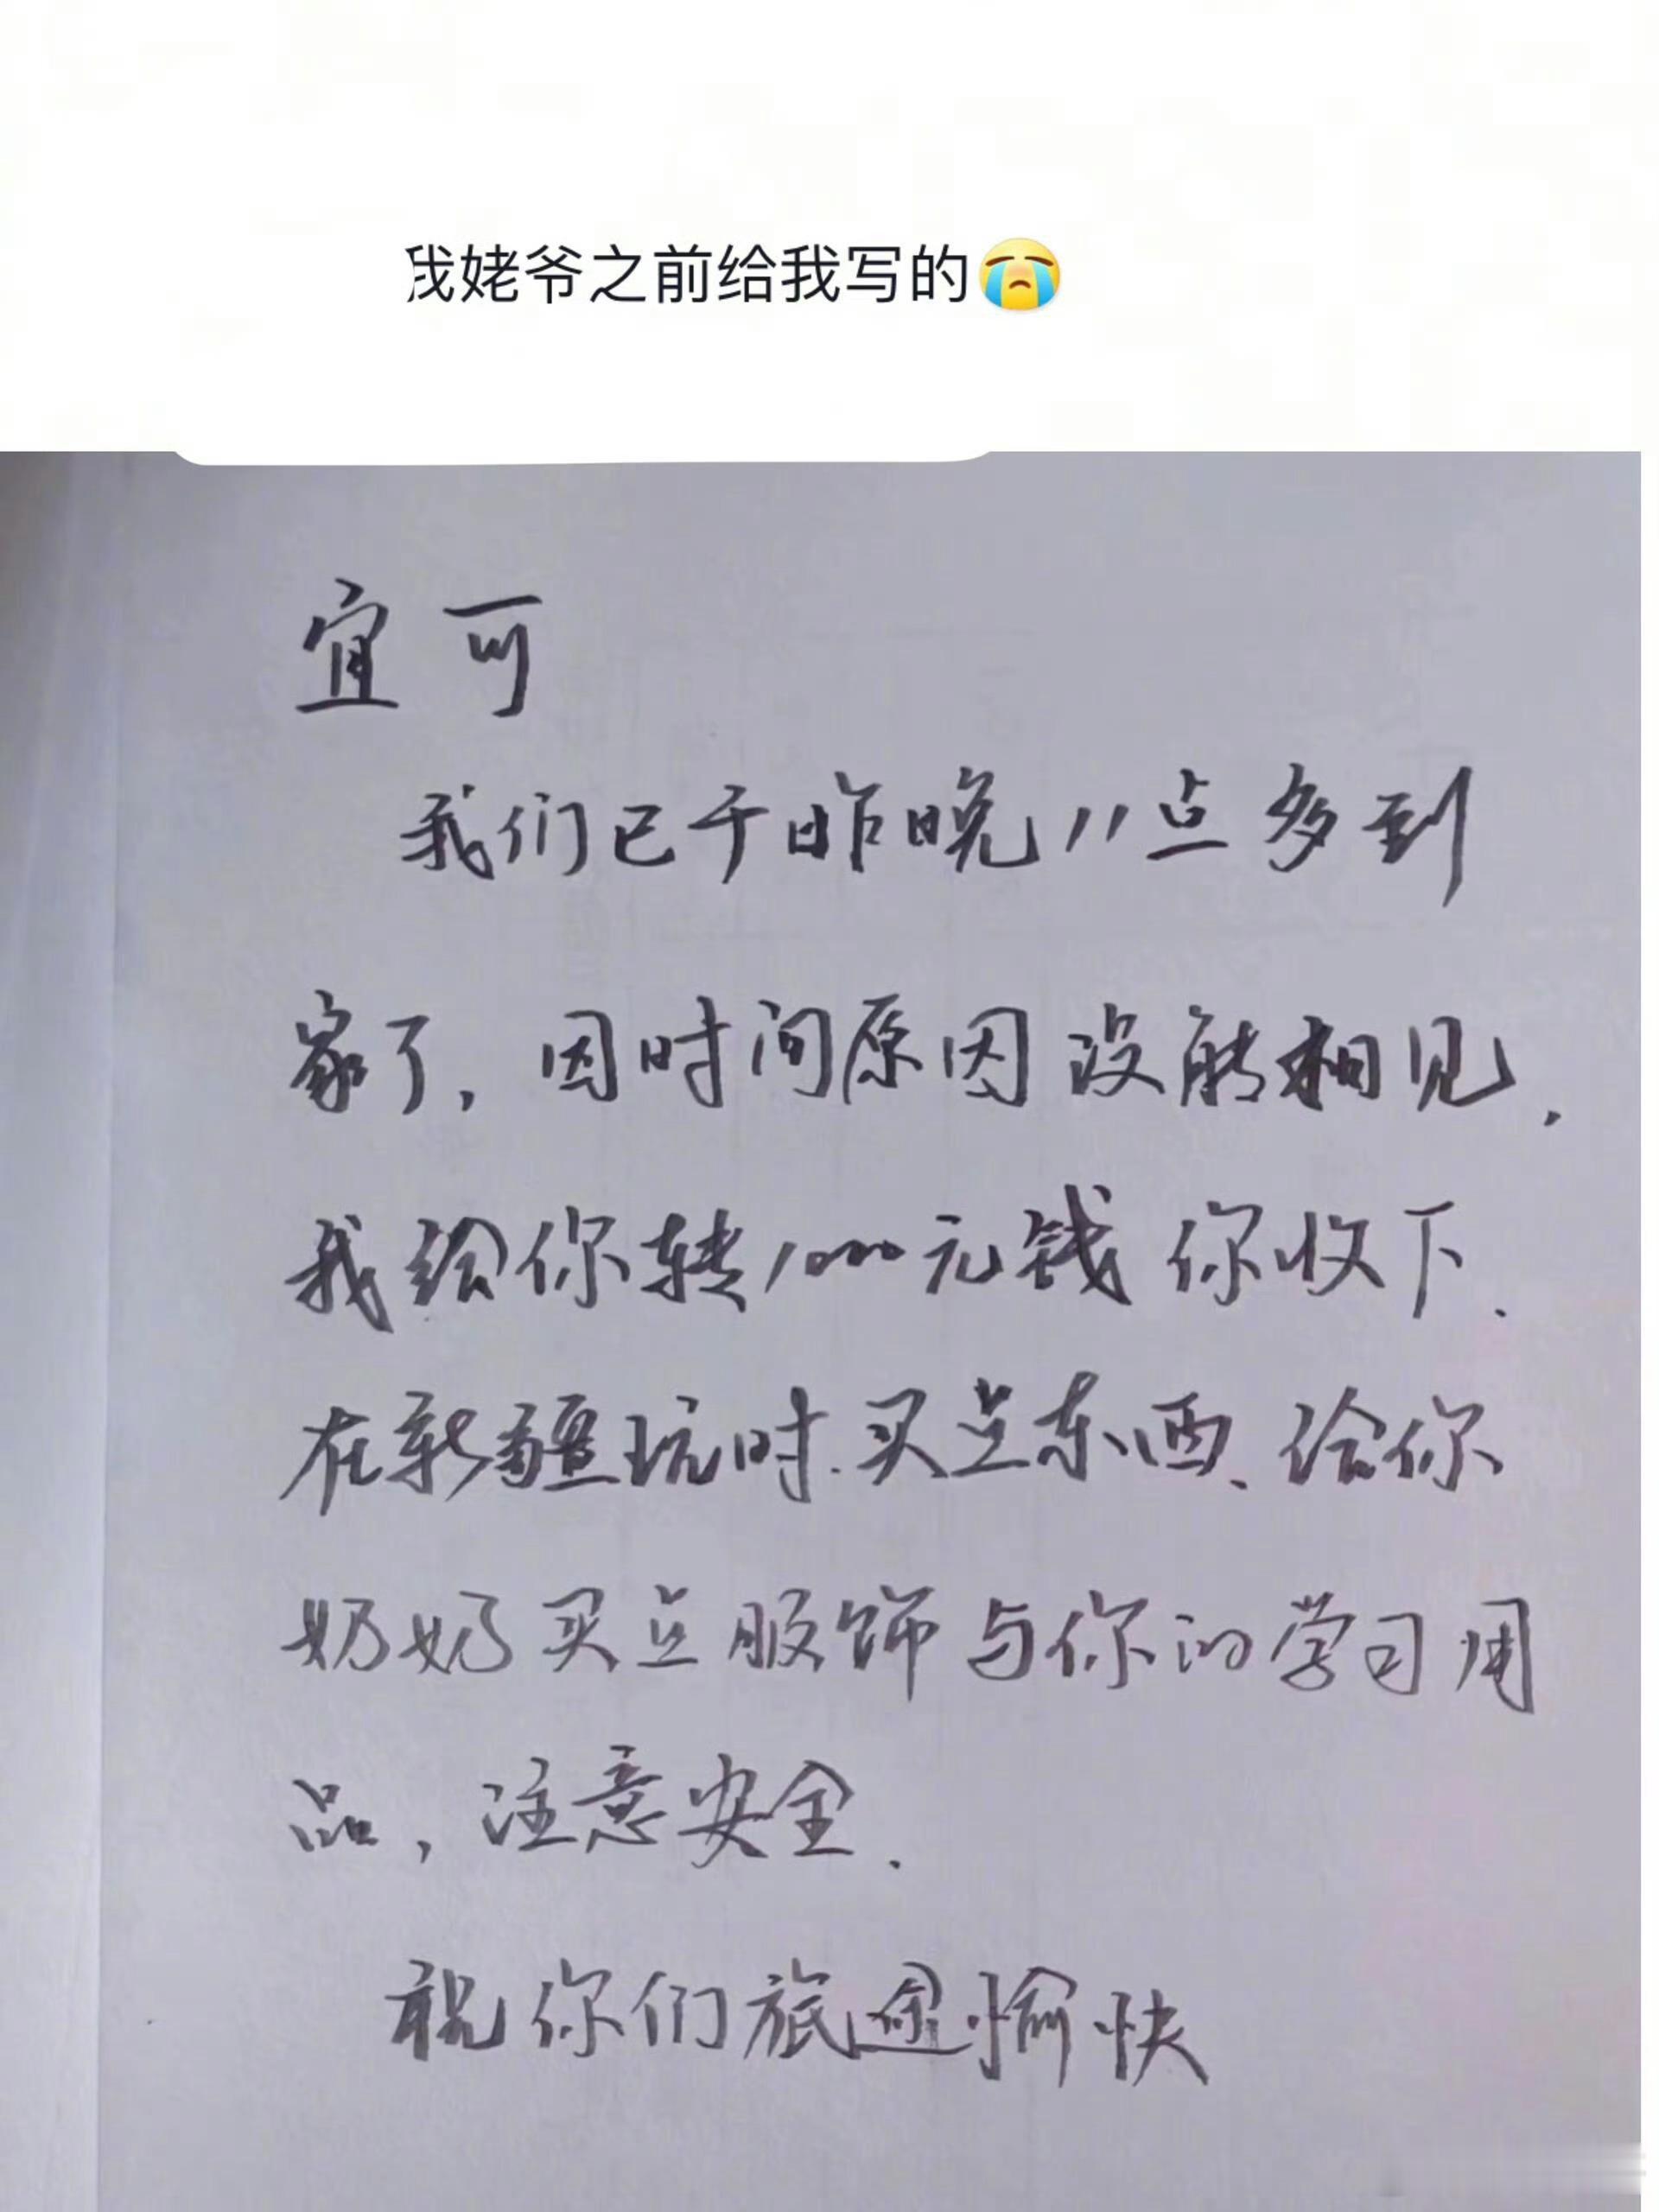 我姥爷之前给我写的😭
宜可
我们已于昨晚11点多到
家了，因时间原因没能相见，
我给你转1000元钱你收下.
在新疆玩时.买点东西、给你
奶奶买点服饰与你的学习用
品，注意安全.
祝你们旅途愉快